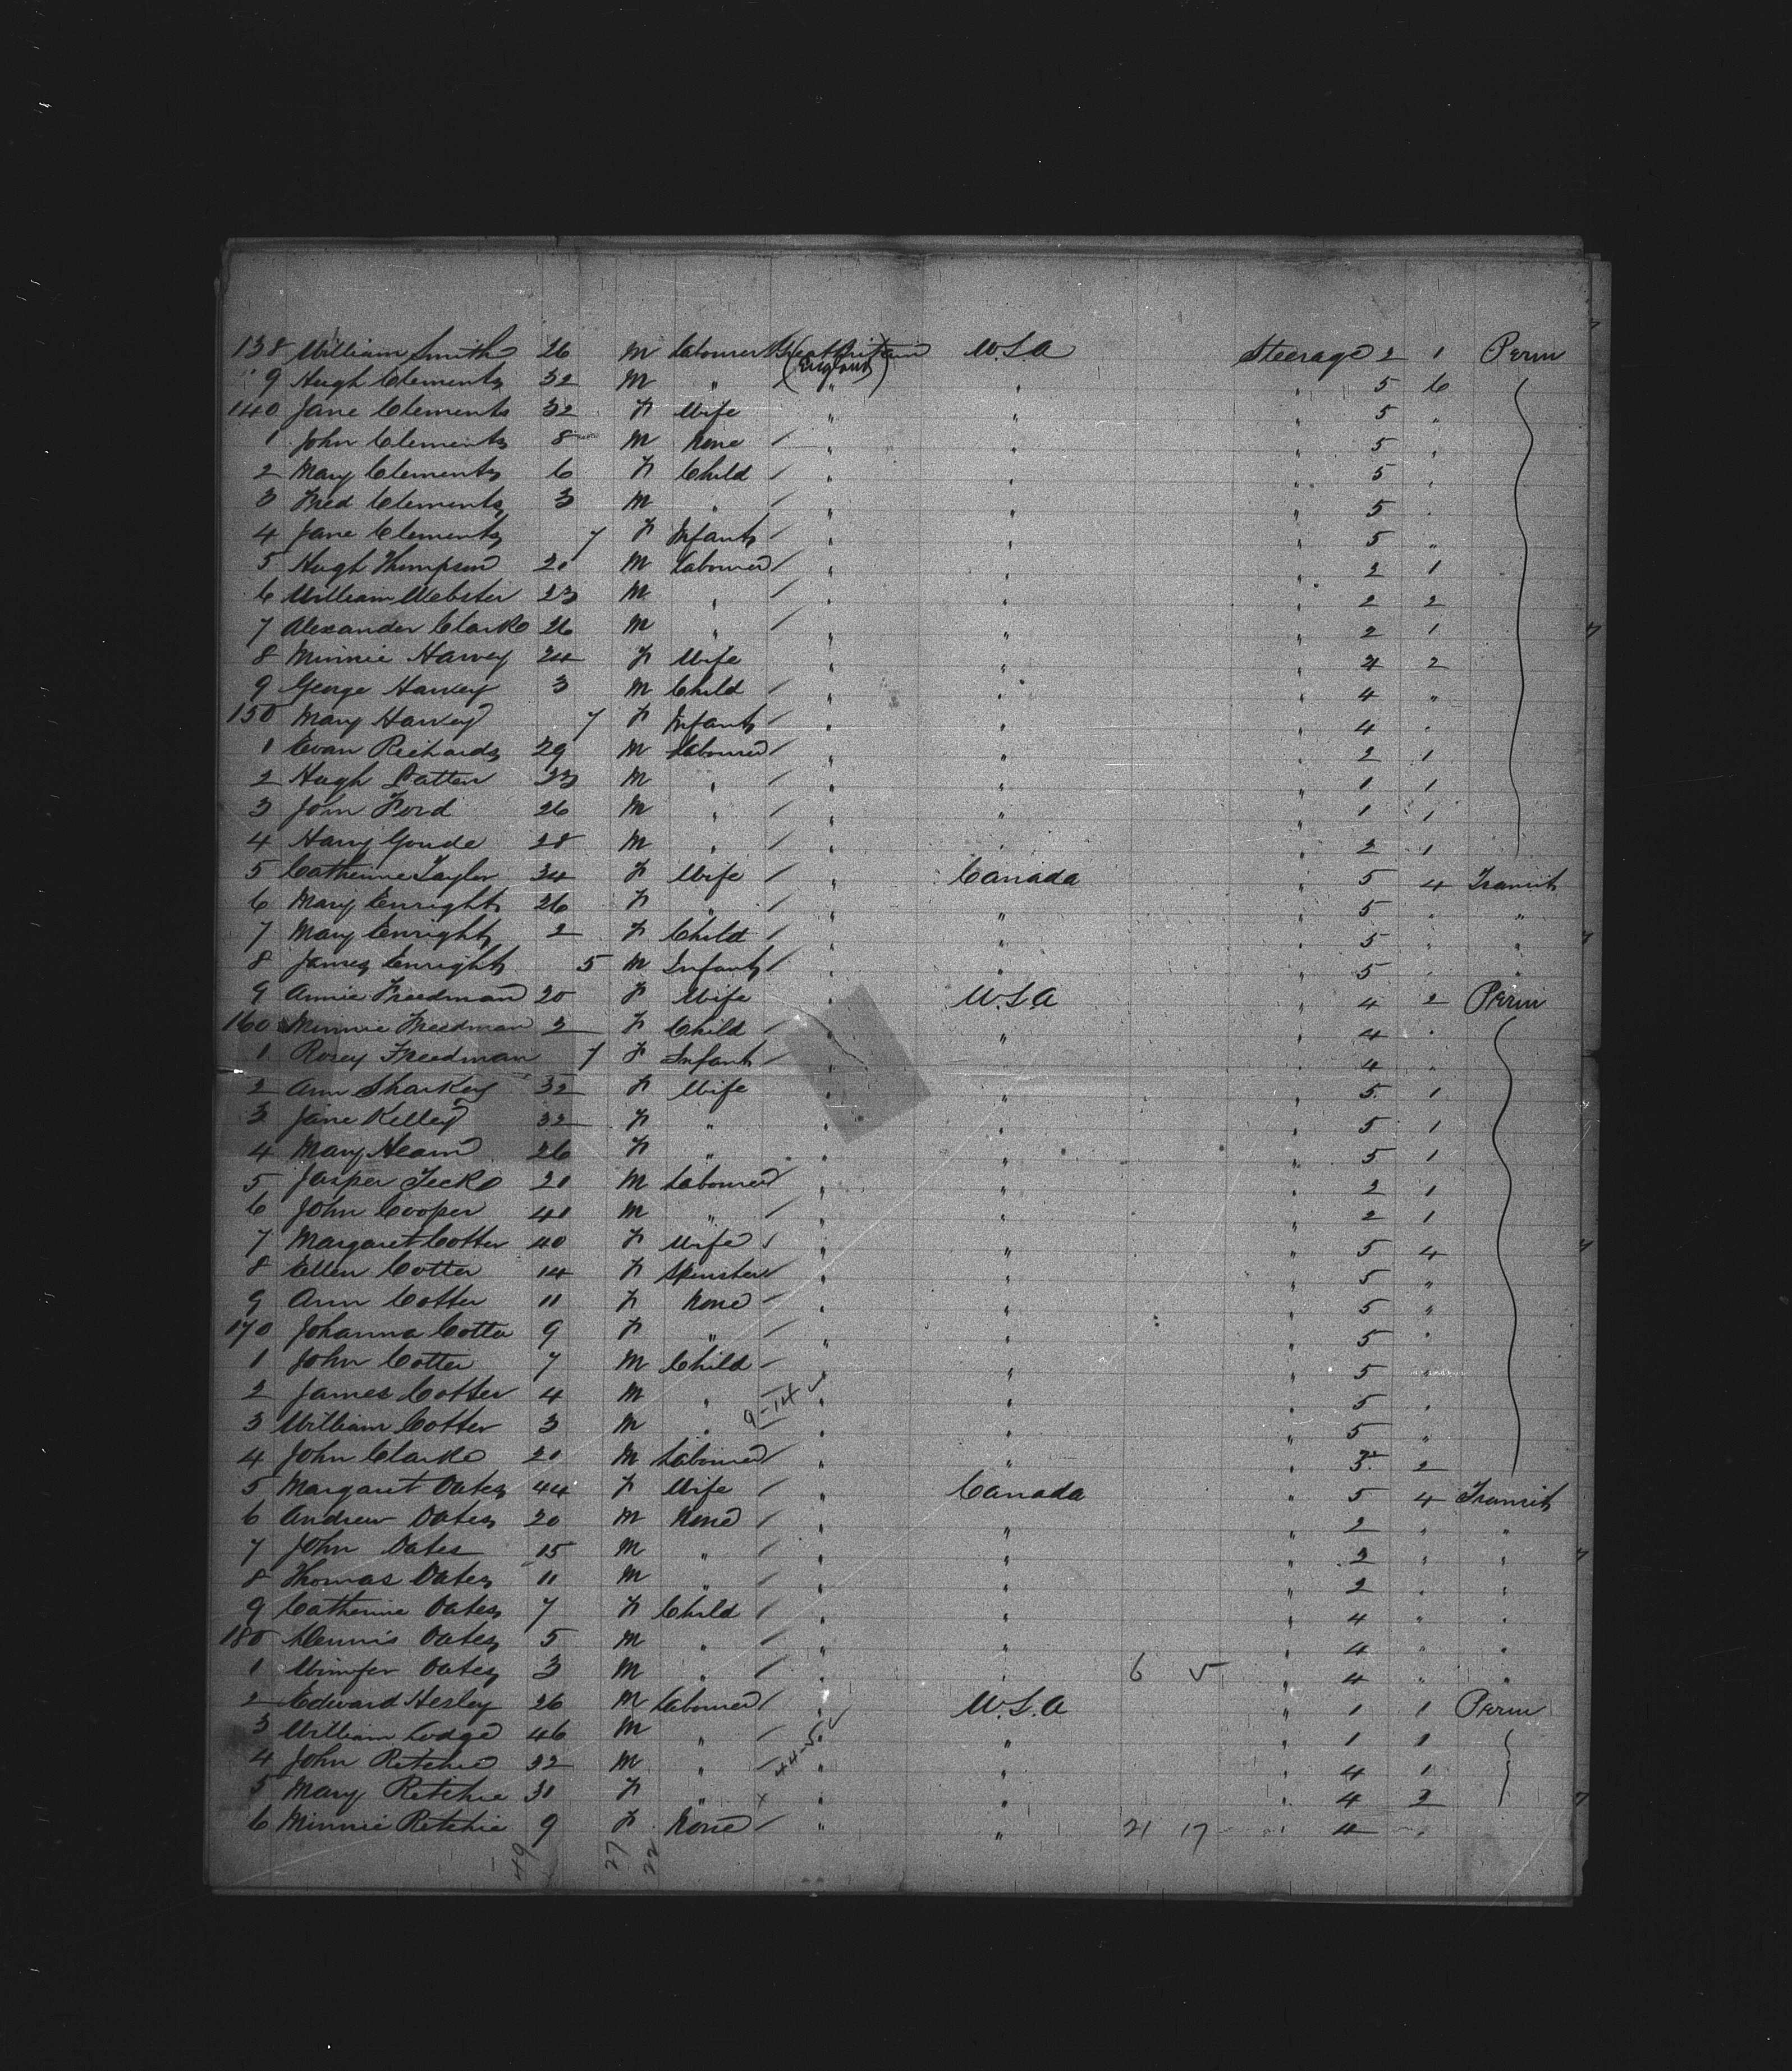 138 William Smith 26 M Labourer Great Britain U.S.A Steerage 2 1 Perm
(England)
9 Hugh Clements 32 M " " " " 5 6
140 Jane Clements 32 F Wife " " " 5 "
1 John Clements 8 M None " " " 5 "
2 Mary Clements 6 F Child " " " 5 "
3 Fred Clements 3 M " " " " 5 "
4 Jane Clements 7 F Infant " " " 5 "
5 Hugh Thompson 21 M Labourer " " " 2 1
6 William Webster 23 M " " " " 2 2
7 Alexander Clarke 26 M " " " " 2 1
8 Minnie Harvey 24 F Wife " " " 4 2
9 George Harvey 3 M Child " " " 4 "
150 Mary Harvey 7 F Infant " " " 4 "
1 Evan Richards 29 M Labourer " " " 2 1
2 Hugh Patten 23 M " " " " 1 1
3 John Ford 26 M " " " " 1 1
4 Harry Goude 28 M " " " " 2 1
5 Catherine Taylor 34 F Wife " Canada " 5 4 Transit
6 Mary Enright 26 F " " " " 5 " "
7 Mary Enright 2 F Child " " " 5 " "
8 James Enright 5 M Infant " " " 5 " "
9 Annie Freedman 20 F Wife " U.S.A " 4 2 Perm
160 Minnie Freedman 2 F Child " " " 4 "
1 Rosey Freedman 7 F Infant " " " 4 "
2 Ann Sharkey 32 F Wife " " " 5 1
3 Jane Kelley 32 F " " " " 5 1
4 Mary Hearn 26 F " " " " 5 1
5 Jasper Jecko 21 M Labourer " " " 2 1
6 John Cooper 41 M " " " " 2 1
7 Margaret Cotter 40 F Wife " " " 5 4
8 Ellen Cotter 14 F Spinster " " " 5 "
9 Ann Cotter 11 F None " " " 5 "
170 Johanna Cotter 9 F " " " " 5 "
1 John Cotter 7 M Child " " " 5 "
2 James Cotter 4 M " " " " 5 "
3 William Cotter 3 M " " " " 5 "
4 John Clarke 21 M Labourer " " " 3 2
5 Margaret Oates 44 F Wife " Canada " 5 4 Transit
6 Andrew Oates 20 M None " " " 2 " "
7 John Oates 15 M " " " " 2 " "
8 Thomas Oates 11 M " " " " 2 " "
9 Catherine Oates 7 F Child " " " 4 " "
180 Dennis Oates 5 M " " " " 4 " "
1 Oates 3 M " " " 6 5 " 4 " "
2 Edward Hesley 26 M Labourer " U.S.A " 1 1 Perm
3 William Lodge 46 M " " " " 1 1
4 John Ritchie 32 M " " " " 4 1
5 Mary Ritchie 31 F " " " " 4 2
6 Minnie Ritchie 9 F None " " 21 17 " 4 "
49 27 22